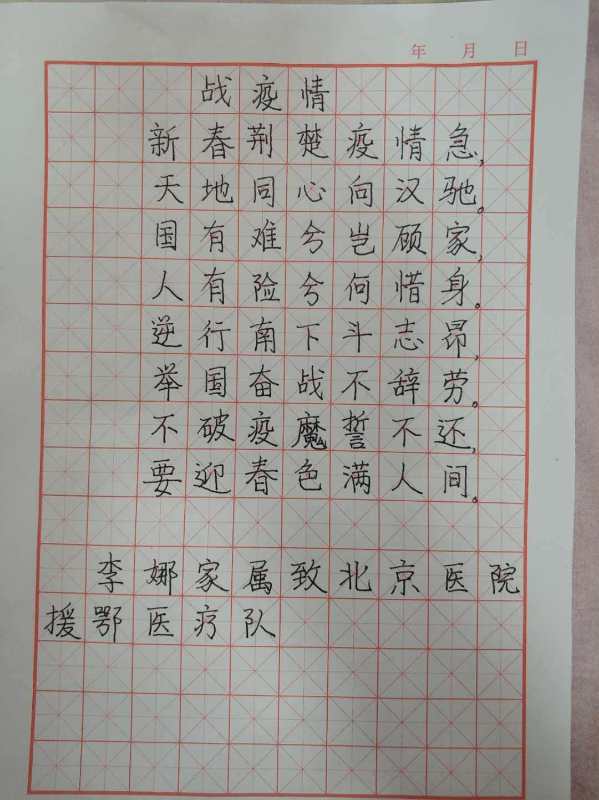 年 月 日
战疫情
新春荆楚疫情急,
天地同心向汉驰。
国有难兮岂顾家,
人有险兮何惜身。
逆行南下斗志昂,
举国奋战不辞劳。
不破疫魔誓不还,
要迎春色满人间。
李娜家属致北京医院
援鄂医疗队